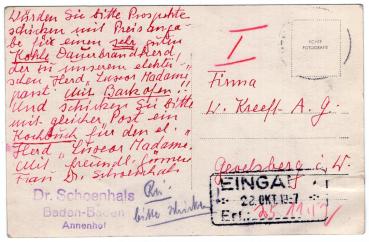 Würden Sie bitte Prospekte
schicken mit Preisanga-
be für einen sehr guten
Kohle Dauerbrand Herd,
der zu unserem elektri-
schen Herd, Luxor Madame
passt. Mit Backofen!!
Und schicken Sie bitte
mit gleicher Post ein
Kochbuch für den el.
Herd „Luxor Madame.
Mit freundl. Grüssen
Frau Dr. Schoenhals
Dr. Schoenhals
Baden-Baden
Annenhof
bitte schicken
I
ECHTE
FOTOGRAFIE
Firma
W. Kreeft A. G.
Gevelsberg i. W.
EINGANG
22. OKT. 19
Erl.: